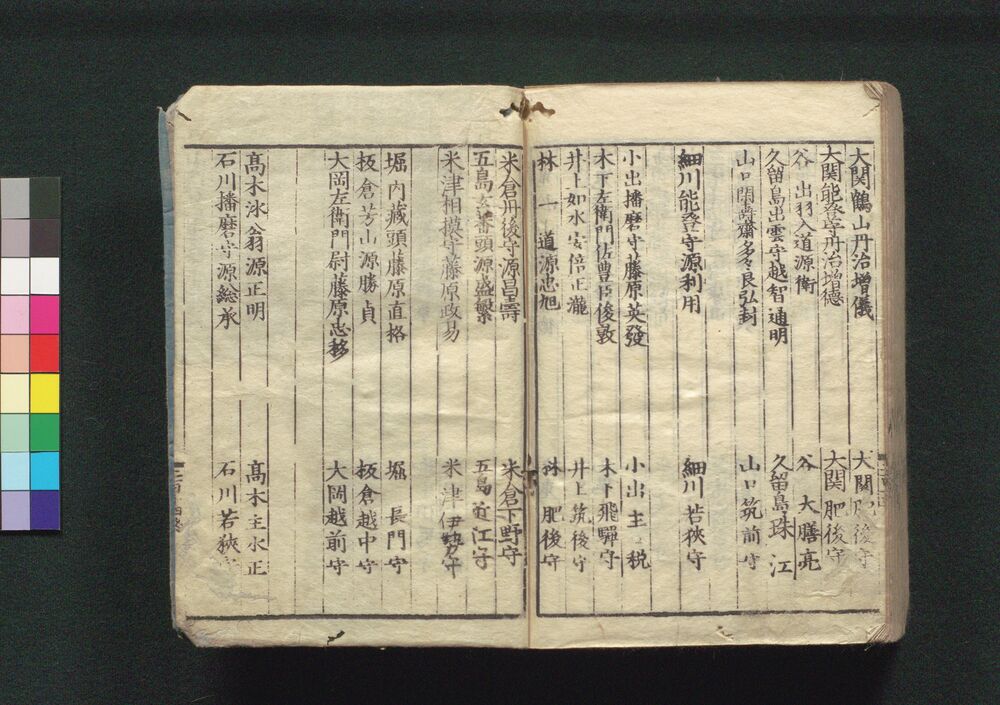 大関鶴山丹治増儀　大関肥後守
大関能登守丹治増徳　大関肥後守
谷出羽入道源衛　谷大膳亮
久留島出雲守越智通明　久留島珠江
山口閑齋多々良弘封　山口筑前守
細川能登守源利用　細川若狭守
小出播磨守藤原英發　小出主税
木下左衛門佐豊臣俊敦　木下飛騨守
井上如水安倍正瀧　井上筑後守
林一道源忠旭　林肥後守
米倉丹後守源昌壽　米倉下野守
五島玄蕃頭源盛繁　五島近江守
米津相摸守藤原政易　米津伊勢守
堀内藏頭藤原直格　堀長門守
板倉芳山源勝貞　板倉越中守
大岡左衛門尉藤原忠移　大岡越前守
髙木泳翁源正明　髙木主水正
石川播磨守源総承　石川若狹守